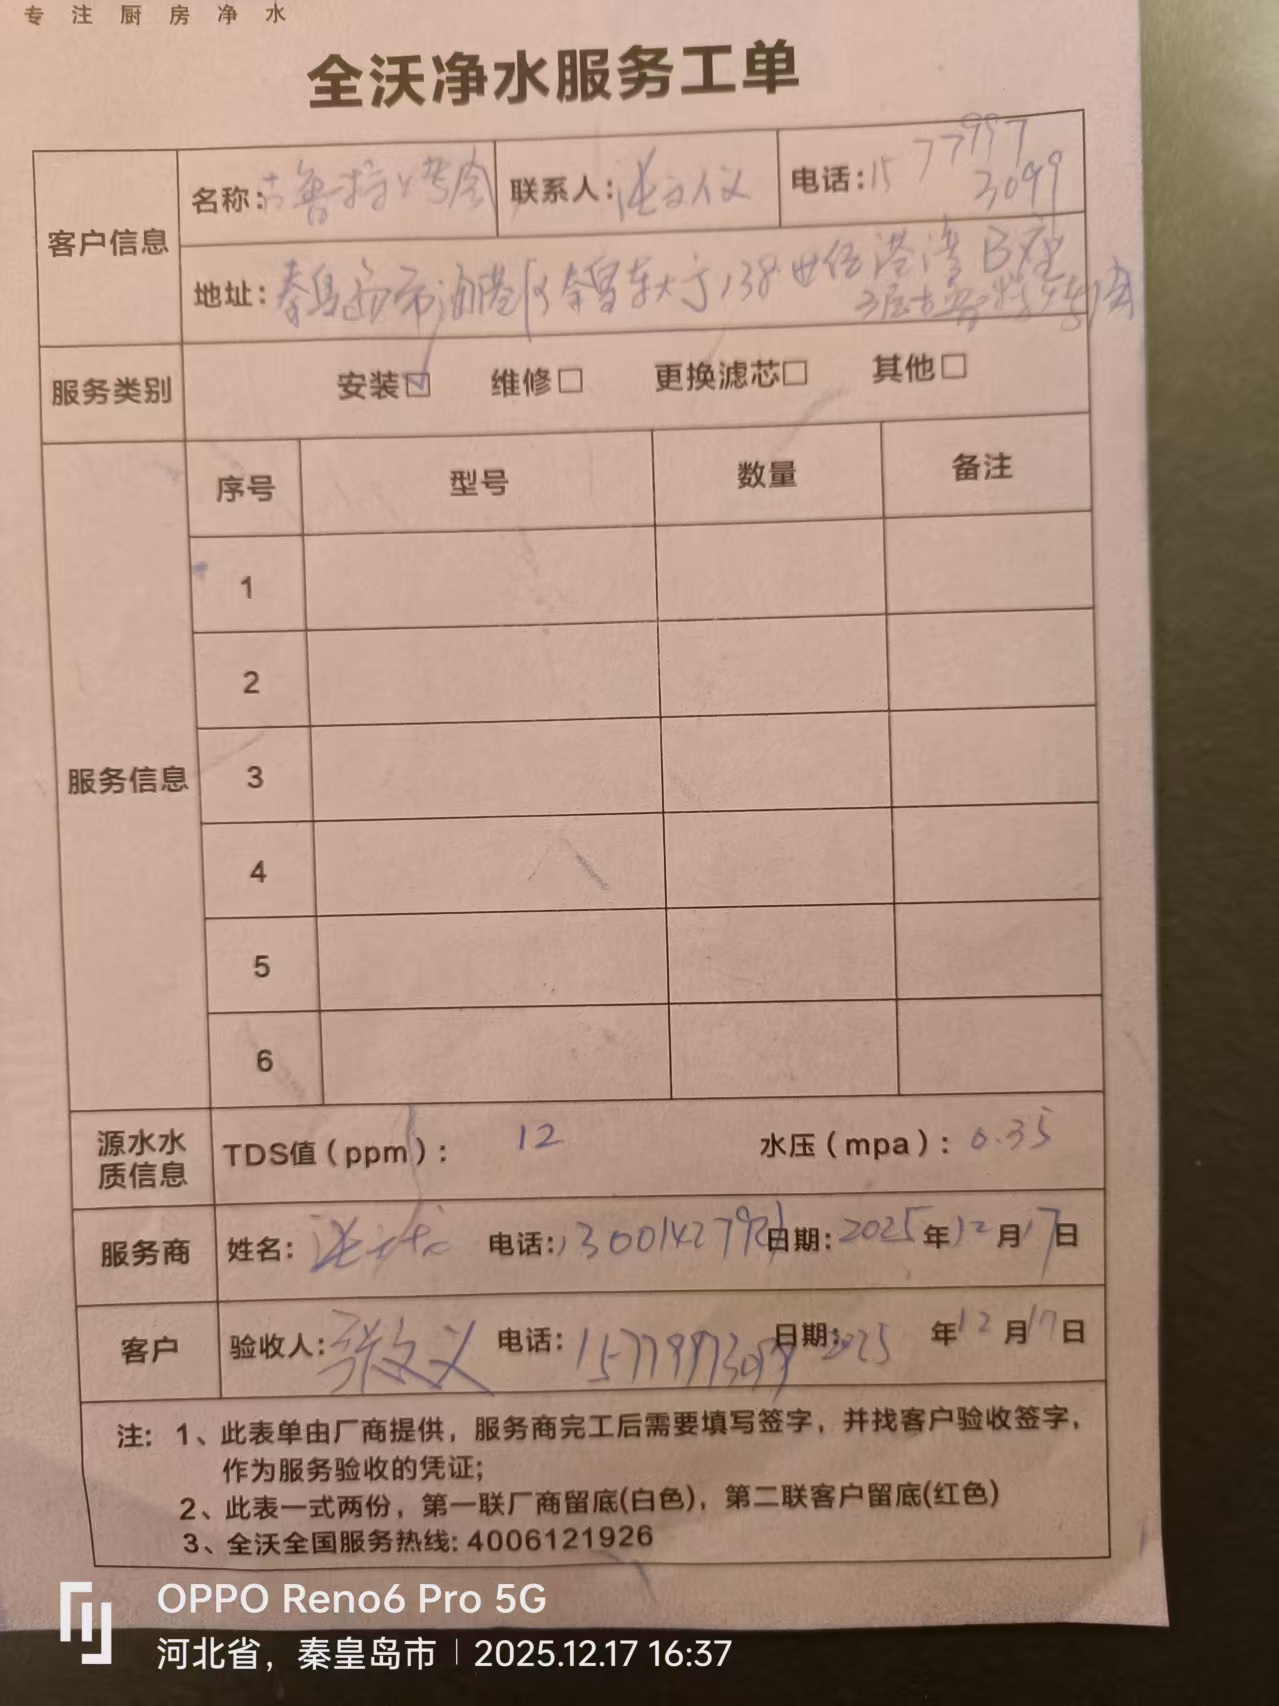 专注厨房净水
全沃净水服务工单
客户信息
名称: 古鲁特烤肉 联系人: 张文义 电话: 15779973099
地址: 秦皇岛市海港区秦皇东大街138世纪港湾B座
三层古鲁特烤肉
服务类别 安装☑ 维修□ 更换滤芯□ 其他□
服务信息
序号 型号 数量 备注
1
2
3
4
5
6
源水水质信息 TDS值(ppm): 12 水压(mpa): 0.35
服务商 姓名: 电话: 日期: 2025年12月17日
客户 验收人: 张文义 电话: 15779973099 日期: 2025年12月17日
注: 1、此表单由厂商提供，服务商完工后需要填写签字，并找客户验收签字，
作为服务验收的凭证;
2、此表一式两份，第一联厂商留底(白色)，第二联客户留底(红色)
3、全沃全国服务热线: 4006121926
OPPO Reno6 Pro 5G
河北省，秦皇岛市 | 2025.12.17 16:37